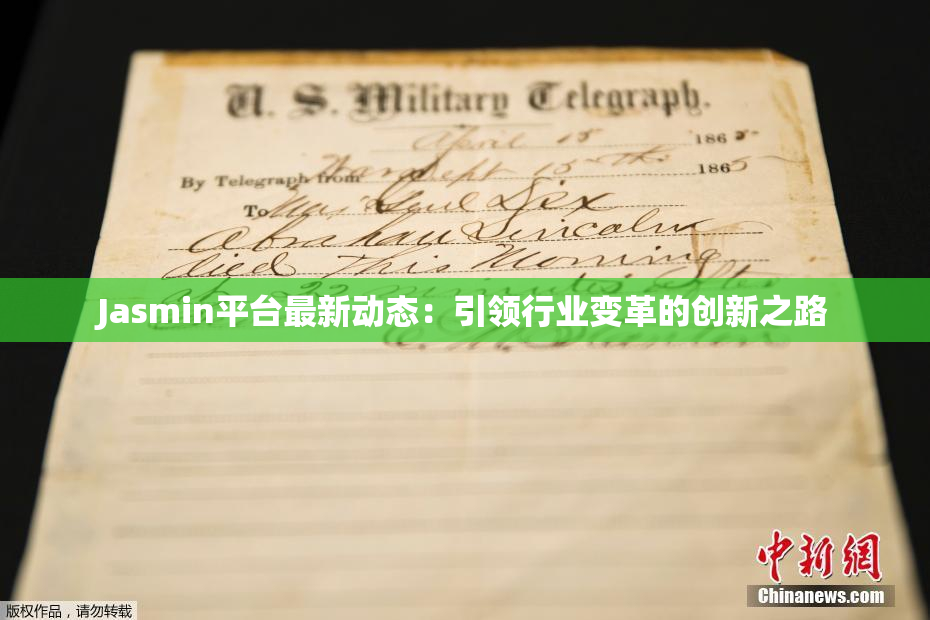 U. S. Military Telegraph.
April 15 1865
By Telegraph from War Dept 15th 1865
To Maj Genl Dix
Abraham Lincoln
died this Morning
at 22 minutes after
Jasmin平台最新动态：引领行业变革的创新之路
中新网
Chinanews.com
版权作品，请勿转载